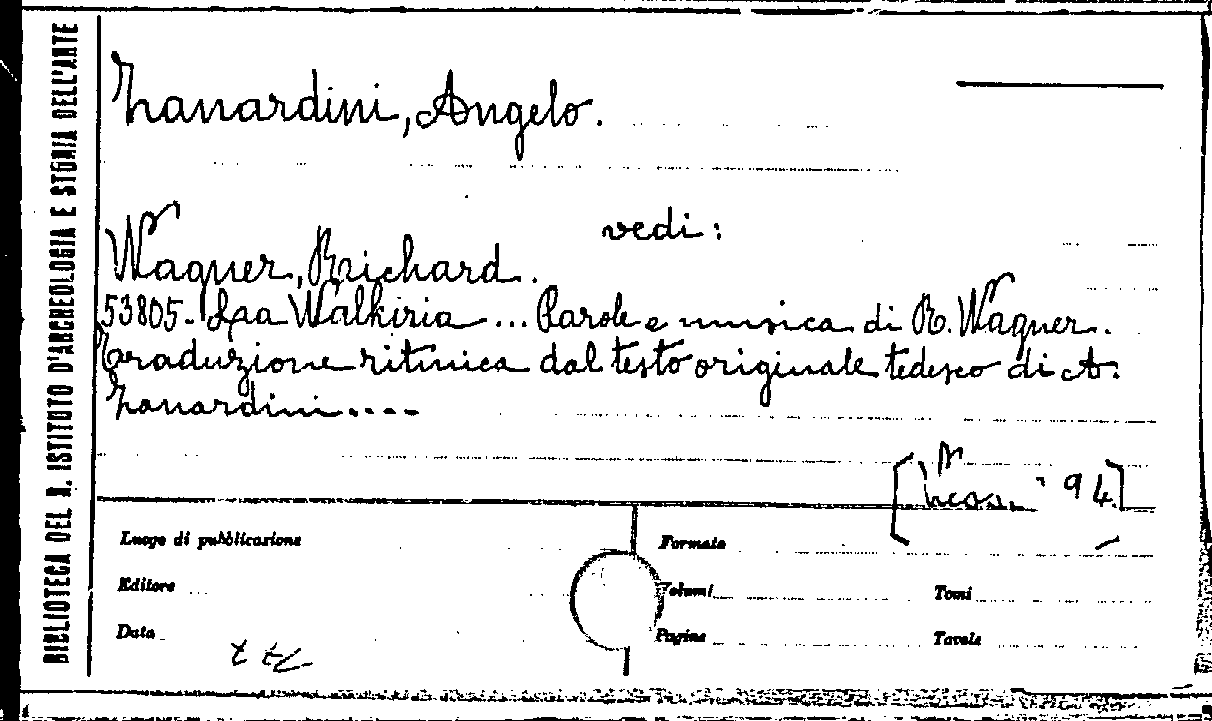 BIBLIOTECA DEL R. ISTITUTO D'ARCHEOLOGIA E STORIA DELL'ARTE
Zanardini, Angelo.
vedi:
Wagner, Richard.
53805. La Walkiria ... Parole e musica di R. Wagner.
Traduzione ritmica dal testo originale tedesco di A.
Zanardini....
94]
Luogo di pubblicazione
Formato
Editore
Volumi
Tomi
Data
Pagine
Tavole